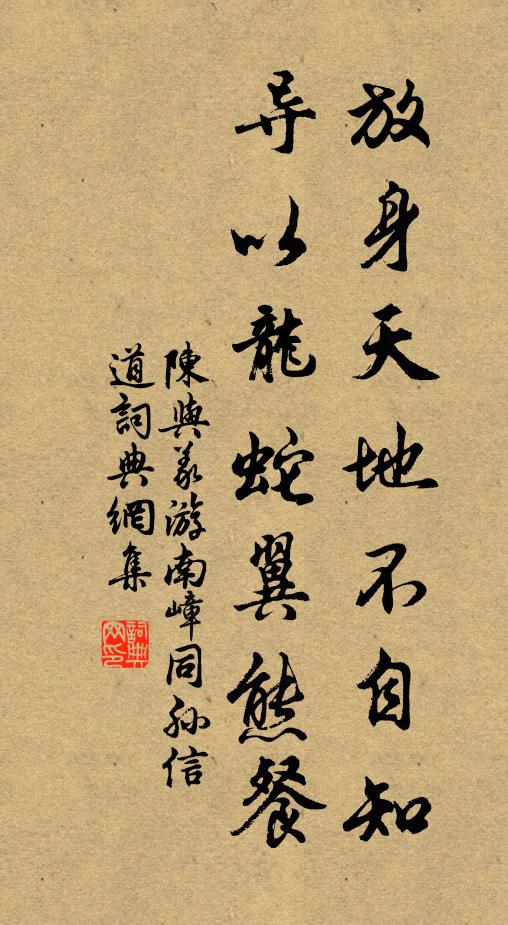 放身天地不自知
导以龍蛇翼熊餐
陳與義游南嶂同孙信
道詞典網集
詞典網印